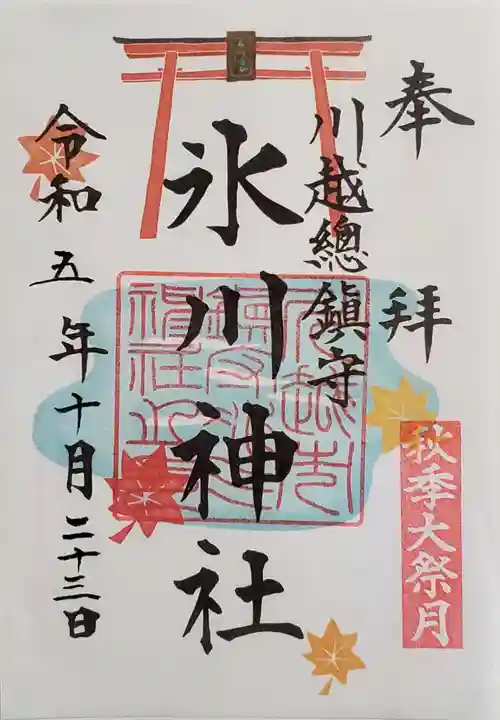 奉拜
秋季大祭月
川越總鎮守
氷川神社
令和五年十月二十三日